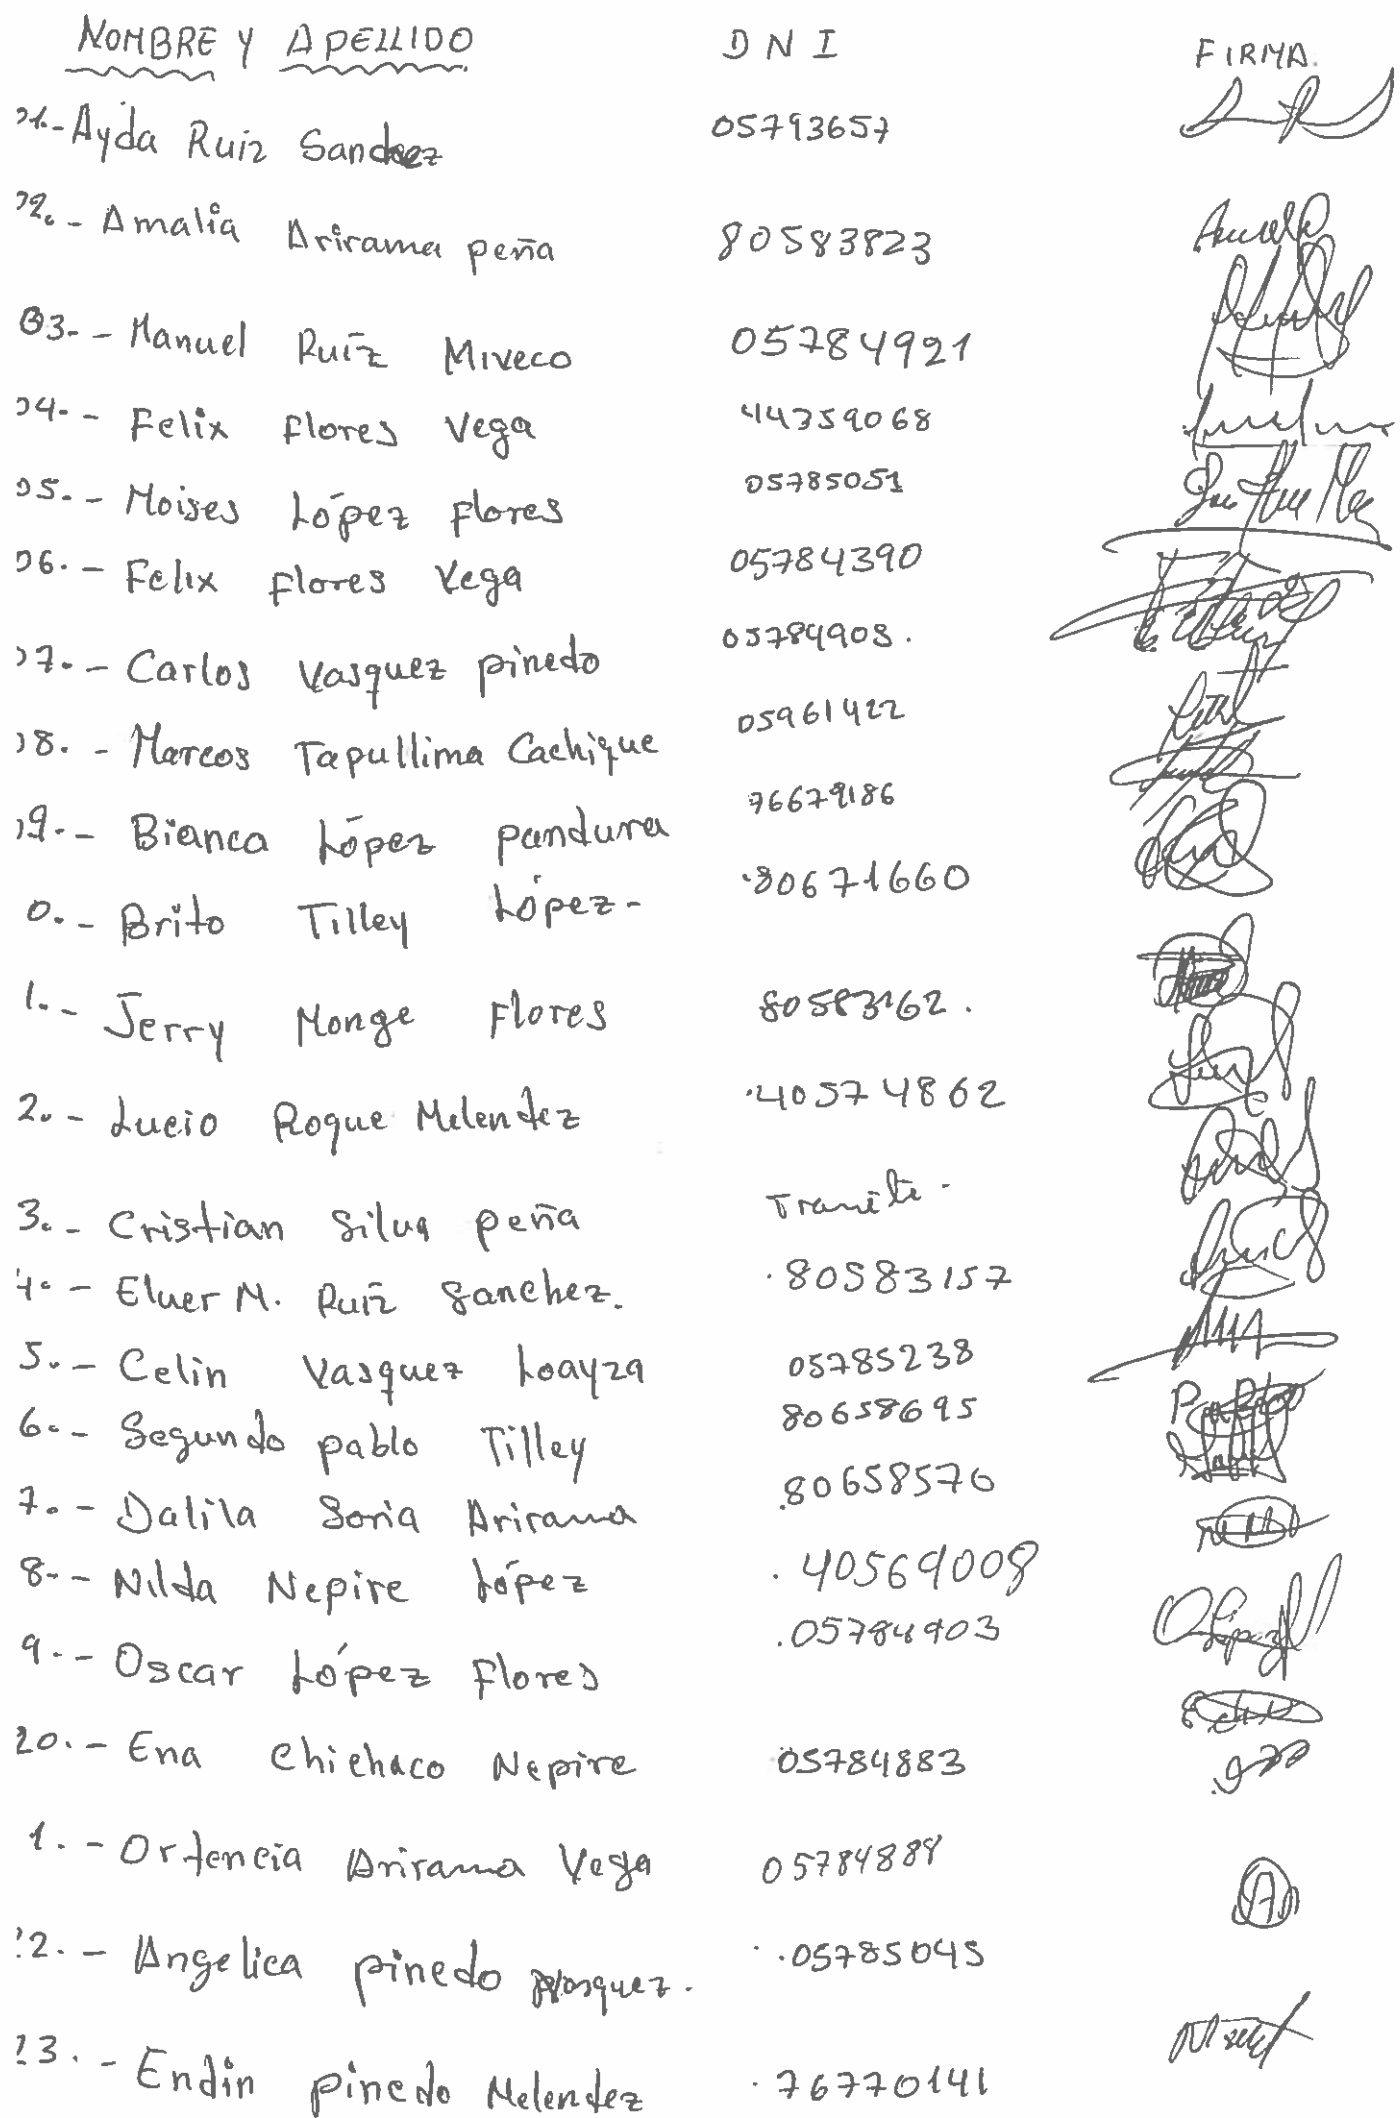 NOMBRE Y APELLIDO DNI FIRMA.
01.- Ayda Ruiz Sanchez 05793657
02.- Amalia Arirama peña 80583823
03.- Manuel Ruíz Miveco 05784921
04.- Felix flores Vega 44359068
05.- Moises López flores 05785051
06.- Felix flores Vega 05784390
07.- Carlos Vasquez pinedo 05784908.
08.- Marcos Tapullima Cachique 05961422
09.- Bianca López pandura 76679186
0.- Brito Tilley López- .80671660
1.- Jerry Monge Flores 80583162.
2.- Lucio Roque Melendez .40574862
3.- Cristian Silva peña Tramite-
4.- Eluer M. Ruíz Sanchez. .80583157
5.- Celin Vasquez Loayza 05785238
6.- Segundo pablo Tilley 80658695
7.- Dalila Soria Arirama .80658576
8.- Nilda Nepire López .40569008
9.- Oscar López Flores .05784903
20.- Ena Chichaco Nepire 05784883
1.- Ortencia Arirama Vega 05784888
22.- Angelica pinedo Vasquez. .05785045
23.- Endin pinedo Melendez .76770141